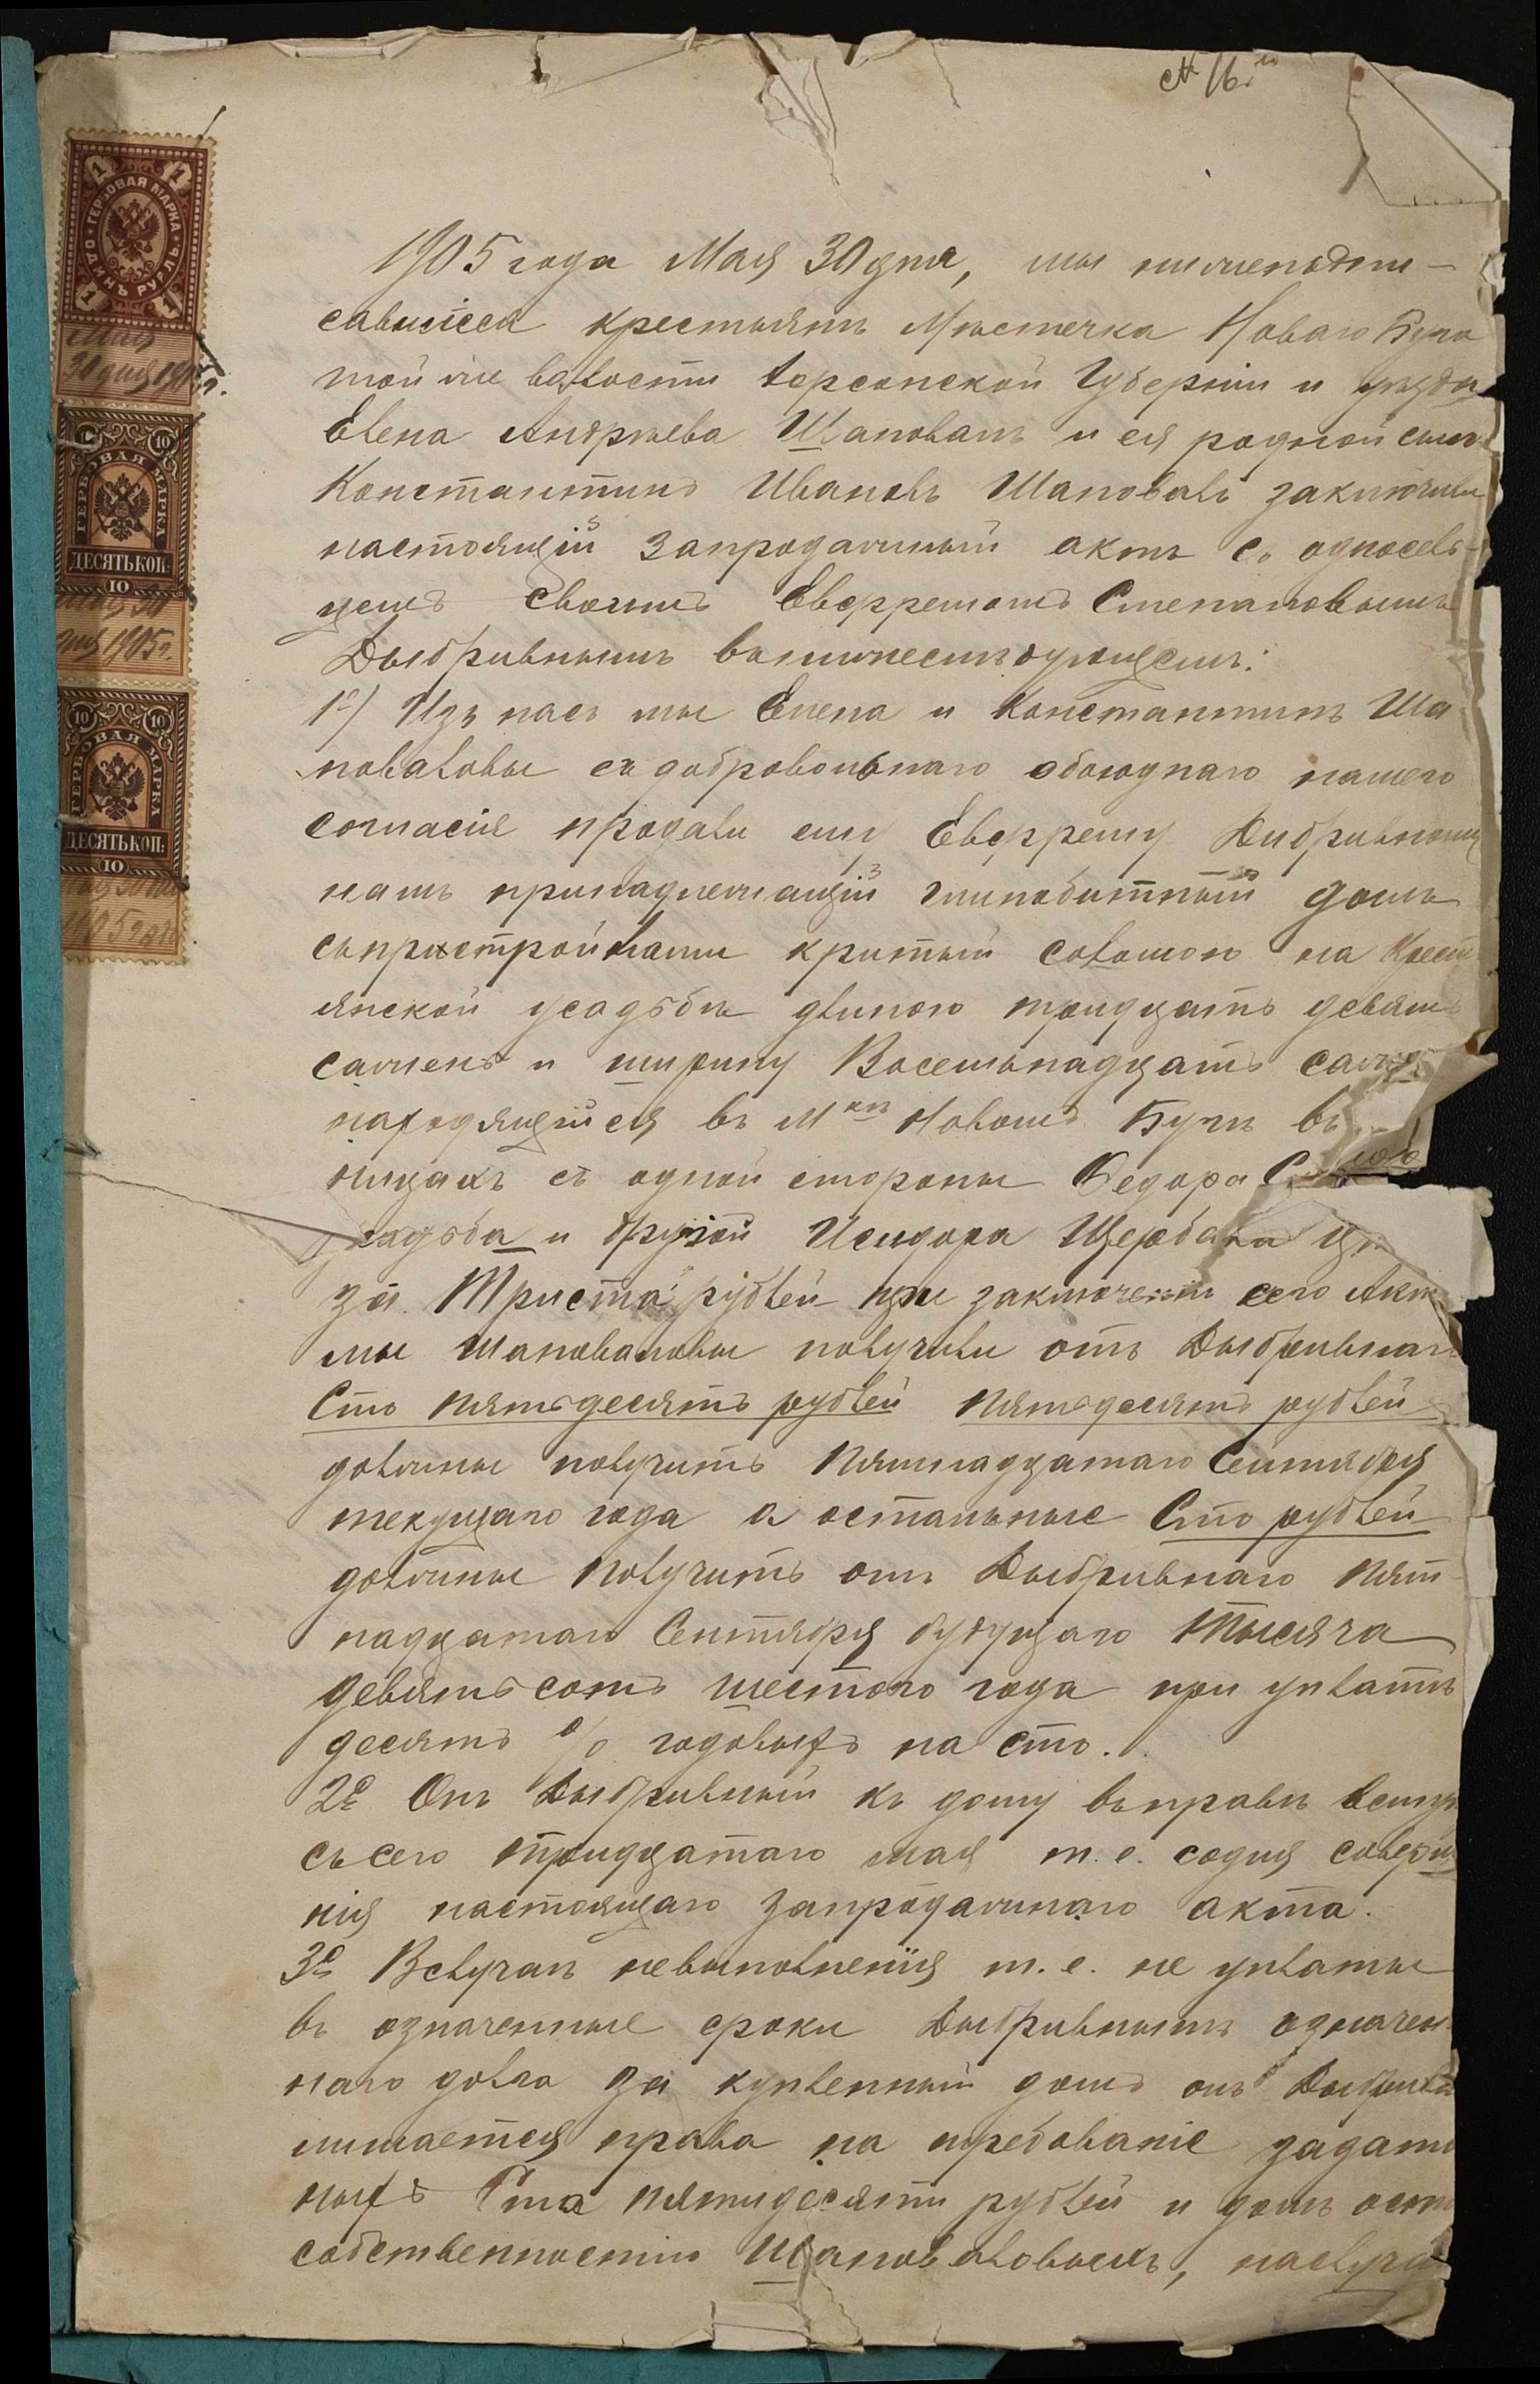 № 16й
ГЕРБОВАЯ МАРКА
ОДИНЪ РУБЛЬ
1 1 1 1
Мая
30 дня 1905 г.
ГЕРБОВАЯ МАРКА
10 10
ДЕСЯТЬ КОП.
10
дня 1905 г.
ГЕРБОВАЯ МАРКА
10 10
ДЕСЯТЬ КОП:
10
1905 года
1905 года Мая 30 дня, мы нижеподпи-
савшіеся крестьянъ Мѣстечка Новаго Буга
той же волости Херсонской Губерніи и уѣзда
Елена Андрѣева Шаповалъ и ея родной сынъ
Константинъ Ивановъ Шаповалъ заключили
настоящій запродажный актъ съ односель-
цемъ своимъ Евфремомъ Степановымъ
Дыбривнымъ вышинеслѣдующемъ:
1е) Изъ насъ мы Елена и Константинъ Ша
поваловы съ добровольнаго обоюднаго нашего
согласія продали ему Евфрему Дибривному
намъ принадлежащій глинобитный домъ
съ пристройками критый соломою на Крест
янской усадьбѣ длиною тридцать девять
сажень и ширину Восемьнадцать саже
находящійся въ Мкѣ Новомъ Бугѣ въ
ницахъ съ одной стороны Федора
усадьба и другой Исидора Щербака
за Триста рублей при заключеніи сего Акта
мы Шаповаловы получили отъ Дыбривнаго
Сто пятьдесятъ рублей пятьдесятъ рублей
должны получить Пятнадцатаго Сентября
текущаго года а остальные Сто рублей
должны получить отъ Дыбривнаго Пят-
надцатаго Сентября будущаго Тысяча
девятьсотъ шестого года при уплатѣ
десять % годовыхъ на сто.
2е Онъ Дыбривный къ дому въправѣ вступ
съ сего тридцатаго мая т. е. содня соверш
нія настоящаго запродажнаго акта.
3е Вслучаѣ невыполненія т. е. не уплаты
въ означенные сроки Дыбривнымъ означен-
наго долга за купленный домъ онъ Дыбривн
лишается права на требованіе задат
ныхъ Ста пятидесяти рублей и домъ оста
собственностію Шаповаловыхъ, наслуча